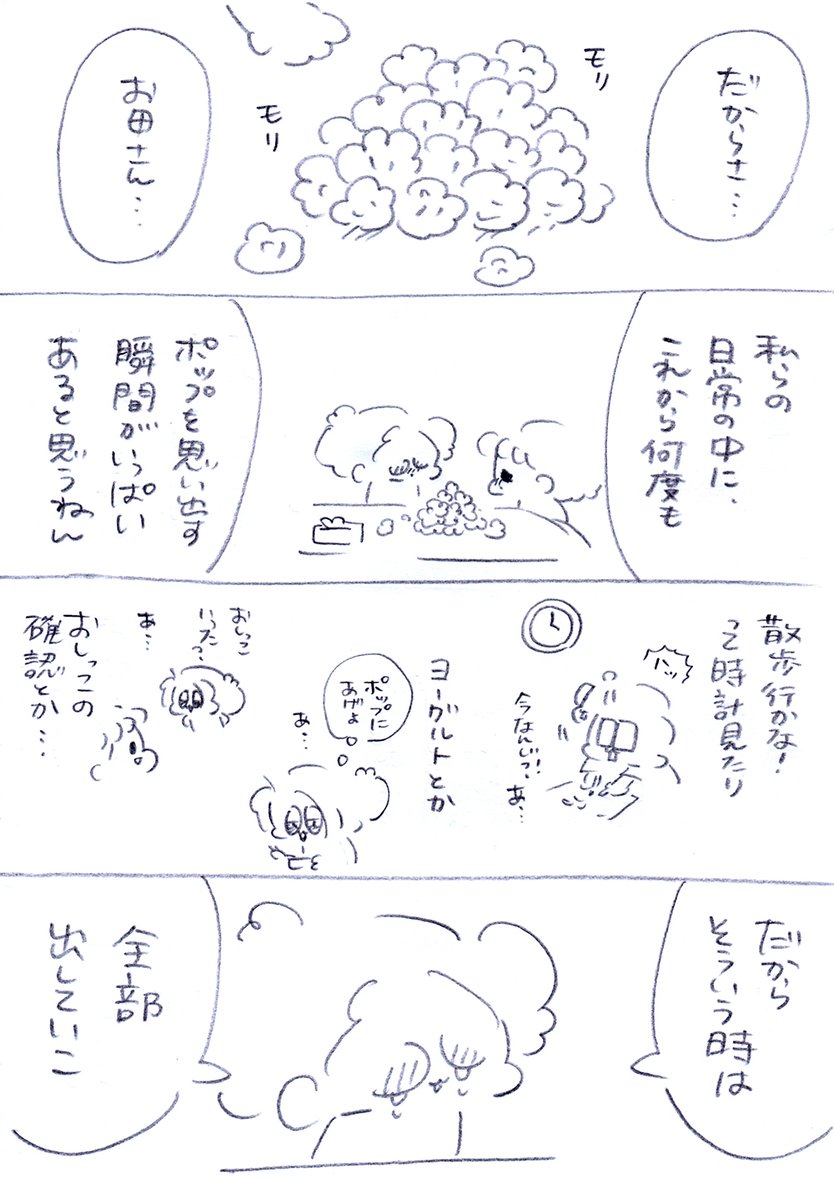 だからさ…
モリ
モリ
お母さん…
私らの
日常の中に、
これから何度も
ポップを思い出す
瞬間がいっぱい
あると思うねん
散歩行かな!
って時計見たり
ハッ
今なんじ!?
あ…
ヨーグルトとか
ポップに
あげよ
あ…
おしっこ
いった?
あ…
おしっこの
確認とか…
だから
そういう時は
全部
出していこ